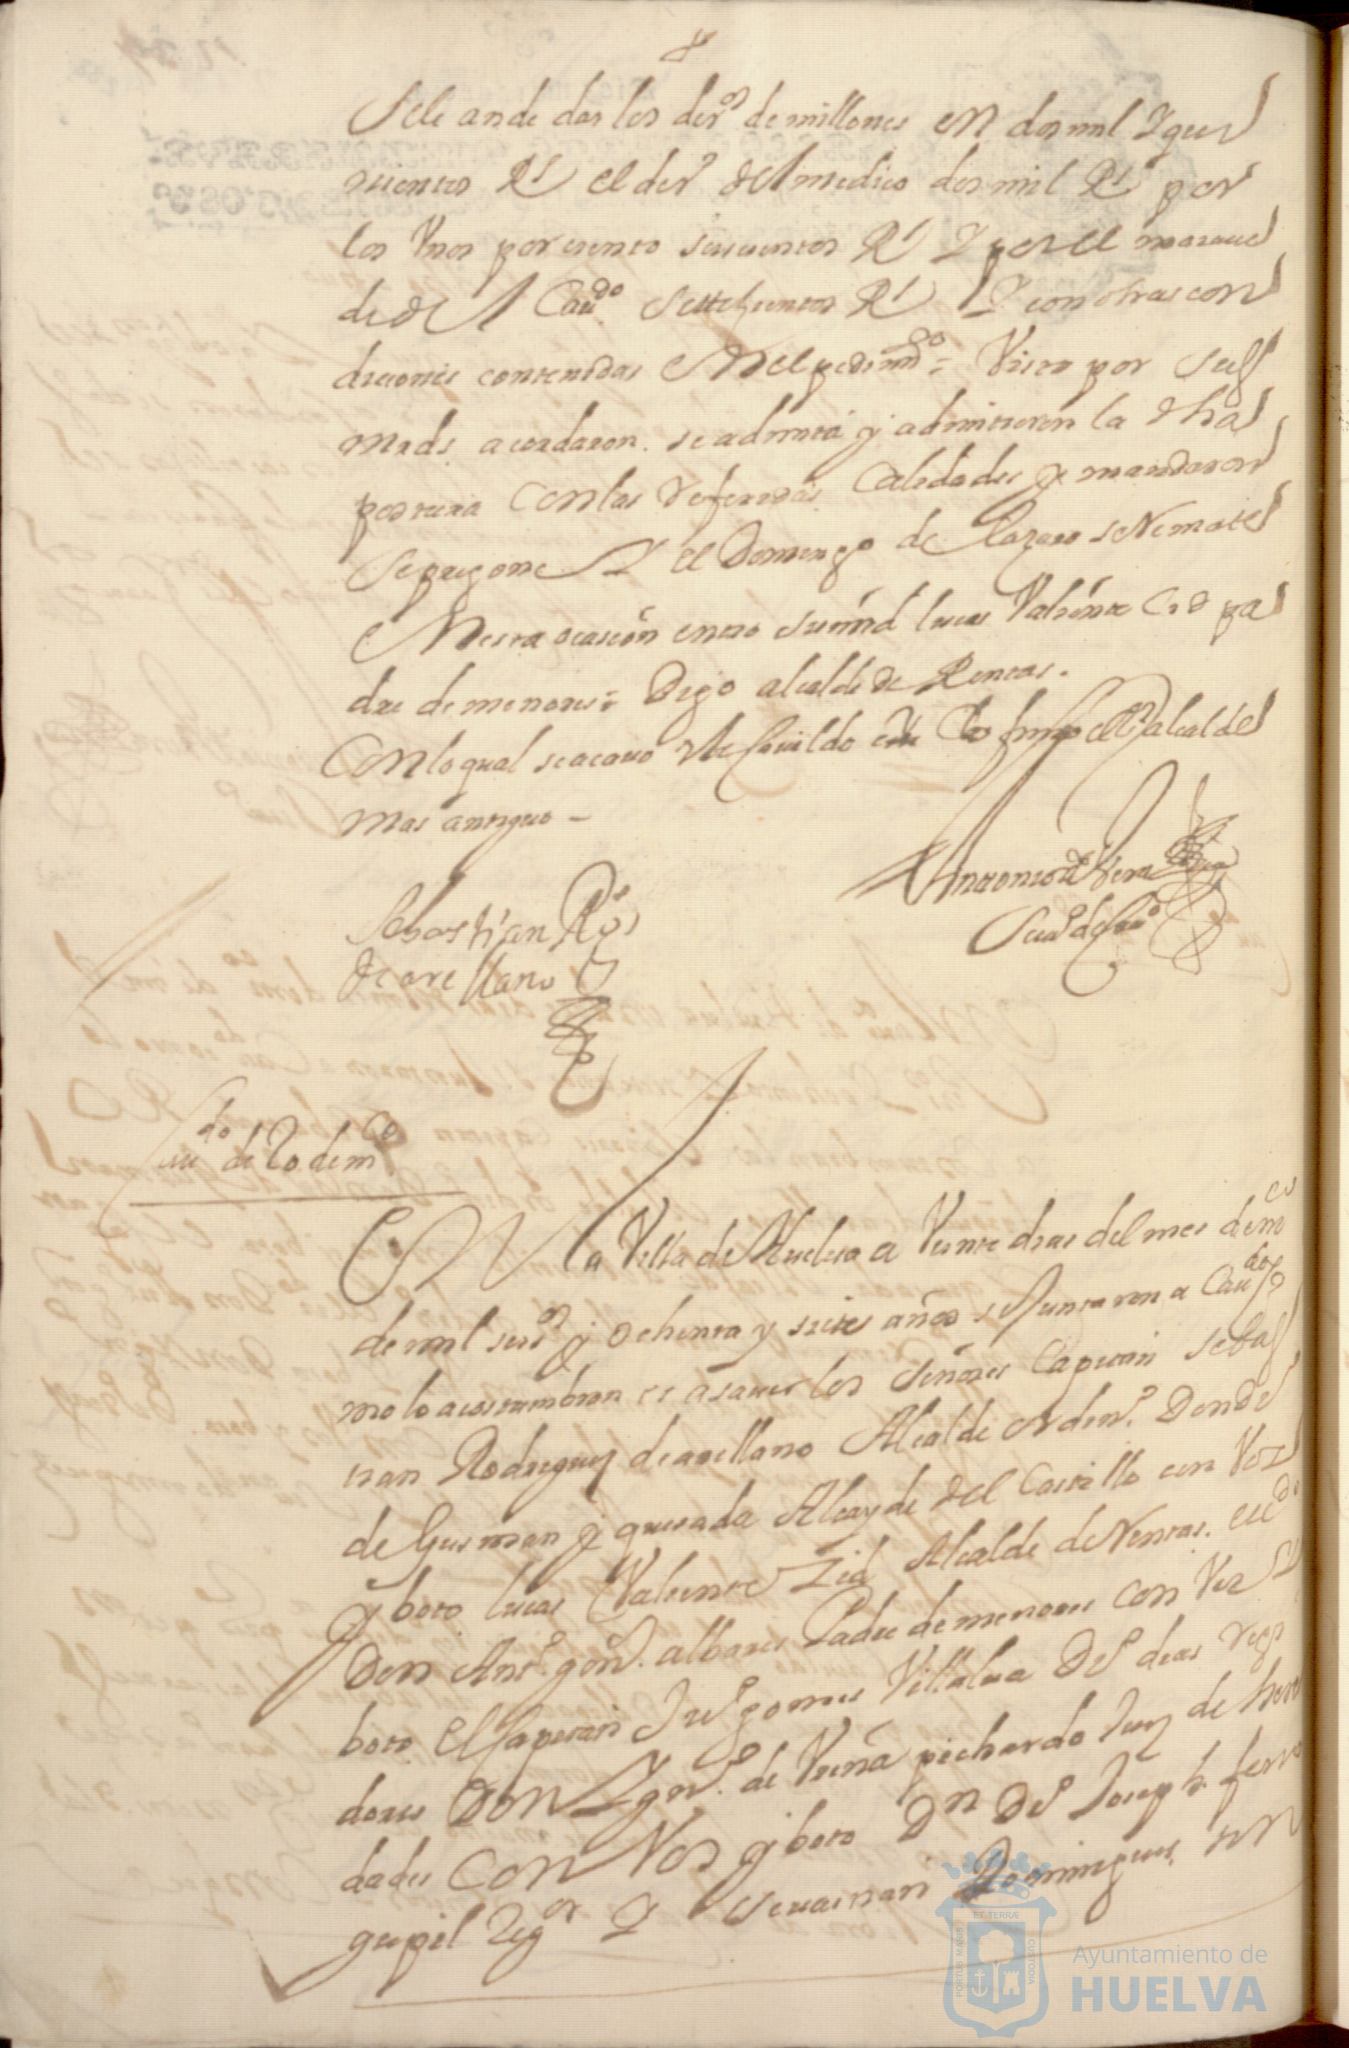 Sele an de dar los der.os de millones en dos mil y qui
nientos Rs el der.o del medico dos mil Rs por
los Unos por ciento seiscientos Rs y por el marque
de del Cau.do Settesientos Rs y con otras con
diciones contenidas en el pedim.to = Visto por Sus
mrds. acordaron se admita y admitieron la dha
postura con las referidas calidades y mandaron
se pregone y el Domingo de Lazaro se Remate
En esta ocasion entro su md lucas Valiente Cid pa
dre de menores = Digo alcalde de Rentas.
Con lo qual se acauo este Cauildo y lo firmo el Sr alcalde
mas antiguo =
Antonio de Vera
Scriu.o de Cau.do
Sebastian Ro.s
de arellano
Cau.do de 20 de m.co
En la Villa de Huelua a Veinte dias del mes de m.co
de mil seis.os y ochenta y siete años se Juntaron a Cau.do co
mo lo acostumbran es a sauer los Señores Capitan sebas
tian Rodriguez de arellano Alcalde ordin.o Don de
de Gusman y quesada Alcayde del Castillo con Voz
y boto lucas Valiente Zid Alcalde de Rentas.
Don Ant.o gon.s albares Padre de menores con Voz y
boto el Capitan Ju.o gomes Villalua D.o dias regi
dores Don de Vreña pichardo Juez de here
dades con Voz y boto Dn D.o Joseph fern
gupil Reg.or y Seuastian Dominguez sin
ET TERRÆ
PORTUS MARIS
CUSTODIA
Ayuntamiento de
HUELVA